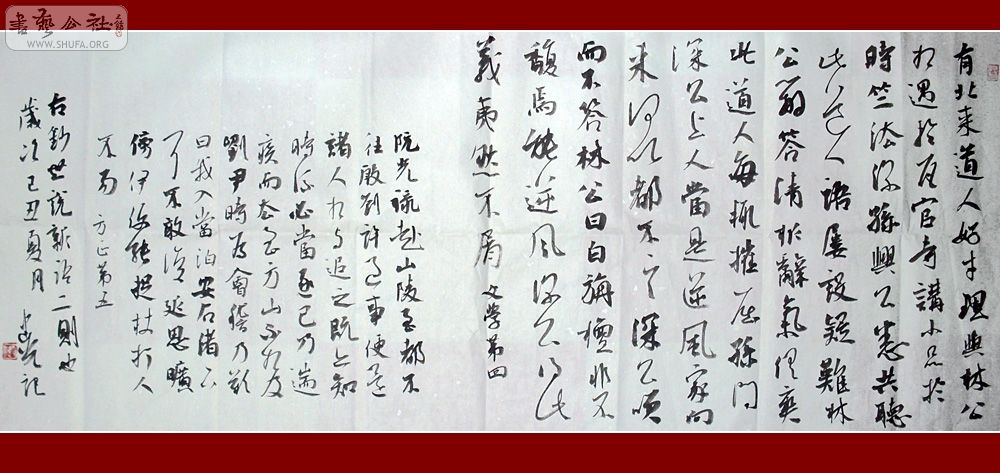 書藝公社
WWW.SHUFA.ORG
有北来道人好才理與林公
相遇於瓦官寺講小品於
時竺法深孫興公悉共聽
此道人語屢設疑難林
公辯答清析辭氣俱爽
此道人每輒摧屈孫問
深公上人當是逆風家向
来何以都不言深公咲
而不答林公曰白旃檀非不
馥焉能逆風深公得此
義夷然不屑 文學第四
阮光祿赴山陵至都不
往殷劉許過事便還
諸人相與追之阮亦知
時流必當逐己乃遄
疾而去至方山不相及
劉尹時為會稽乃歎
曰我入當泊安石渚下
耳不敢復近思曠
傍伊便能捉杖打人
不易 方正第五
右鈔世說新語二則也
歲次己丑夏月 記